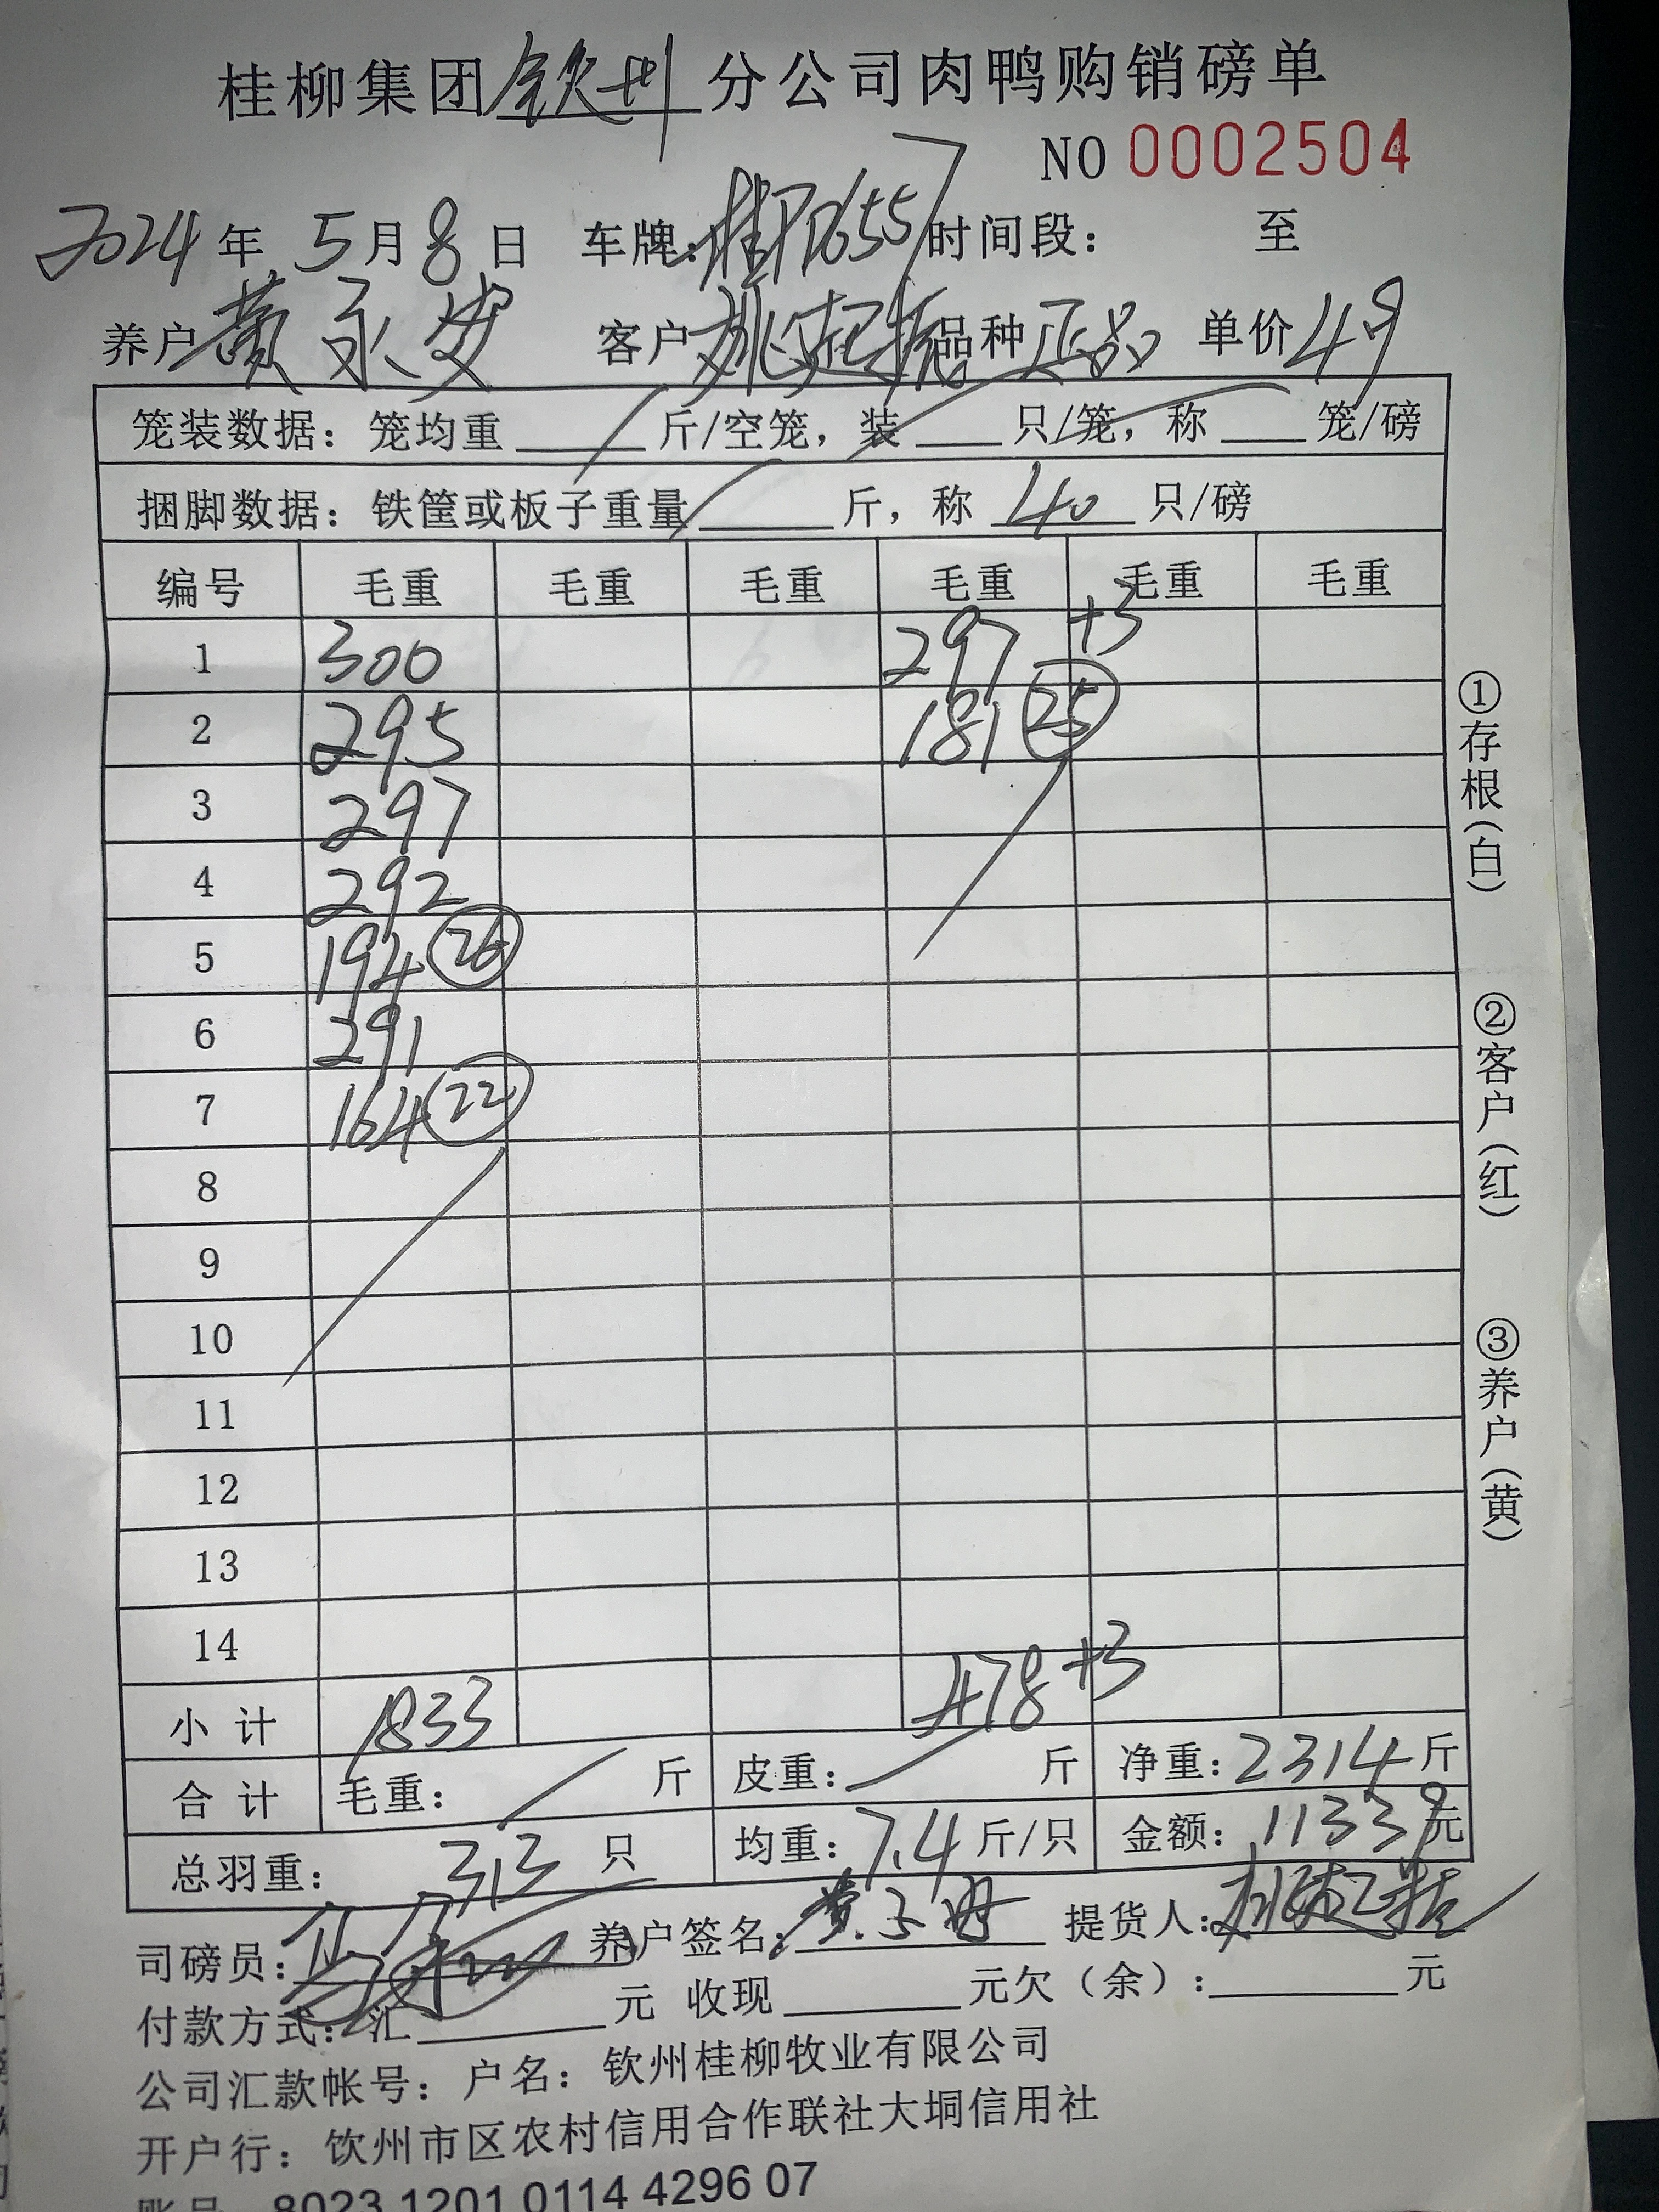 桂柳集团钦州分公司肉鸭购销磅单
NO 0002504
2024年5月8日 车牌：桂PD6557 时间段： 至
养户 黄永安 客户 姚起振 品种 正品 单价 4.9
笼装数据：笼均重 斤/空笼，装 只/笼，称 笼/磅
捆脚数据：铁筐或板子重量 斤，称 40 只/磅
编号 毛重 毛重 毛重 毛重 毛重 毛重
1 300 297 +3
2 295 181 (25)
3 297
4 292
5 194 (26)
6 291
7 164 (22)
8
9
10
11
12
13
14
小计 1833 478 +3
合计 毛重： 斤 皮重： 斤 净重：2314斤
总羽重： 313 只 均重：7.4斤/只 金额：11339元
司磅员： 养户签名： 提货人：姚起振
付款方式：汇 元 收现 元欠（余）： 元
公司汇款帐号：户名：钦州桂柳牧业有限公司
开户行：钦州市区农村信用合作联社大垌信用社
账号 8023 1201 0114 4296 07
①存根（白）
②客户（红）
③养户（黄）